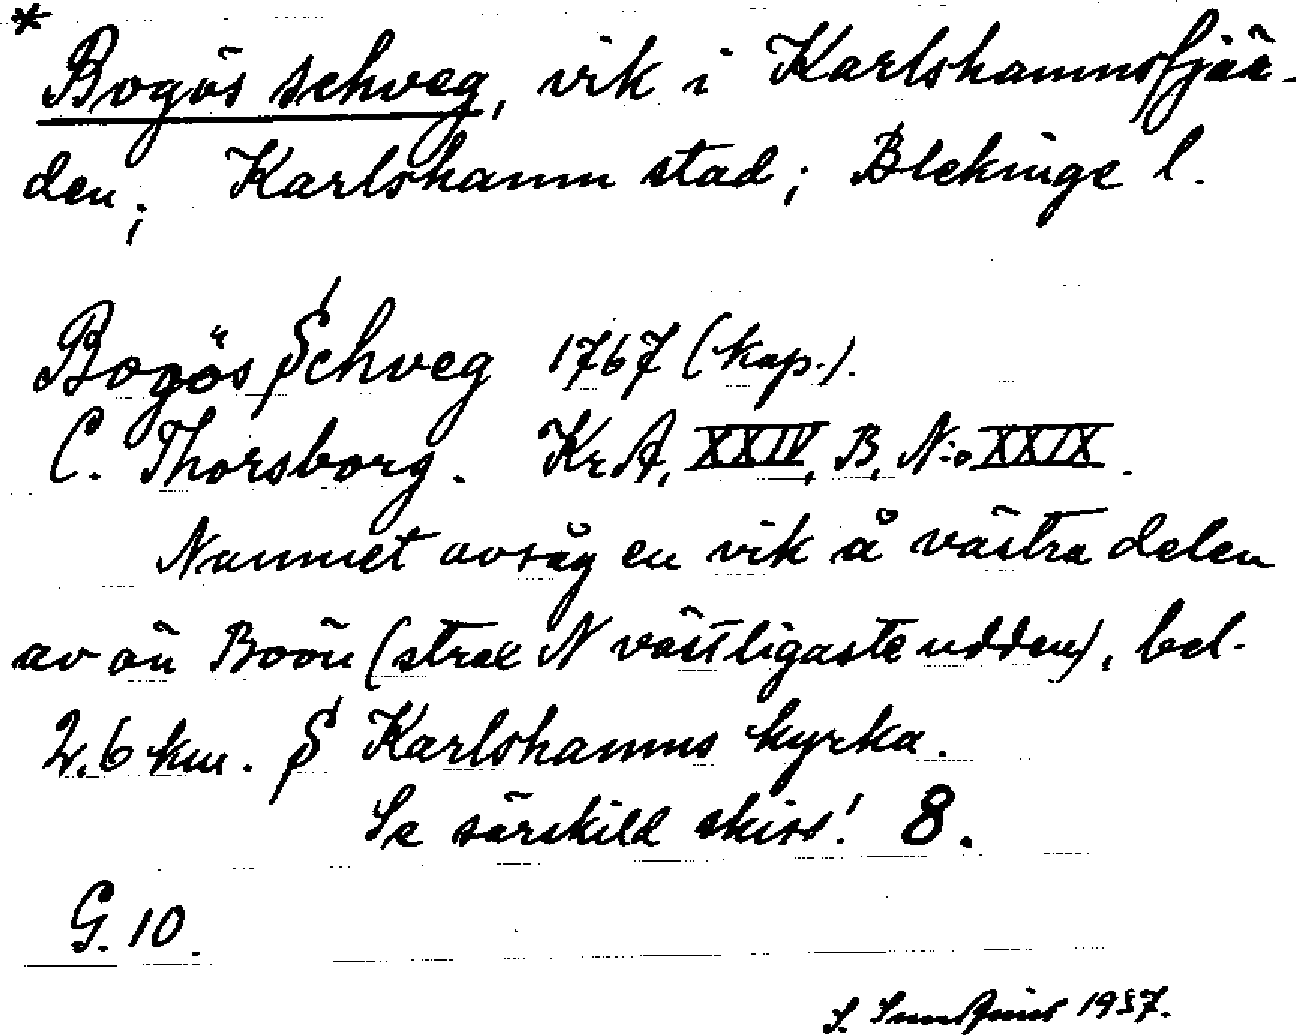 * Bogös schveg, vik i Karlshamnsfjär-
den; Karlshamn stad; Blekinge l.
Bogös Schveg 1767 (kop.).
C. Thorsborg. Kr. A. XXIV, B, N:o XXIX.
Namnet avsåg en vik å västra delen
av ön Boön (strax N västligaste udden), bel.
2.6 km. S Karlshamns kyrka.
Se särskild skiss! 8.
G. 10.
S. 1957.